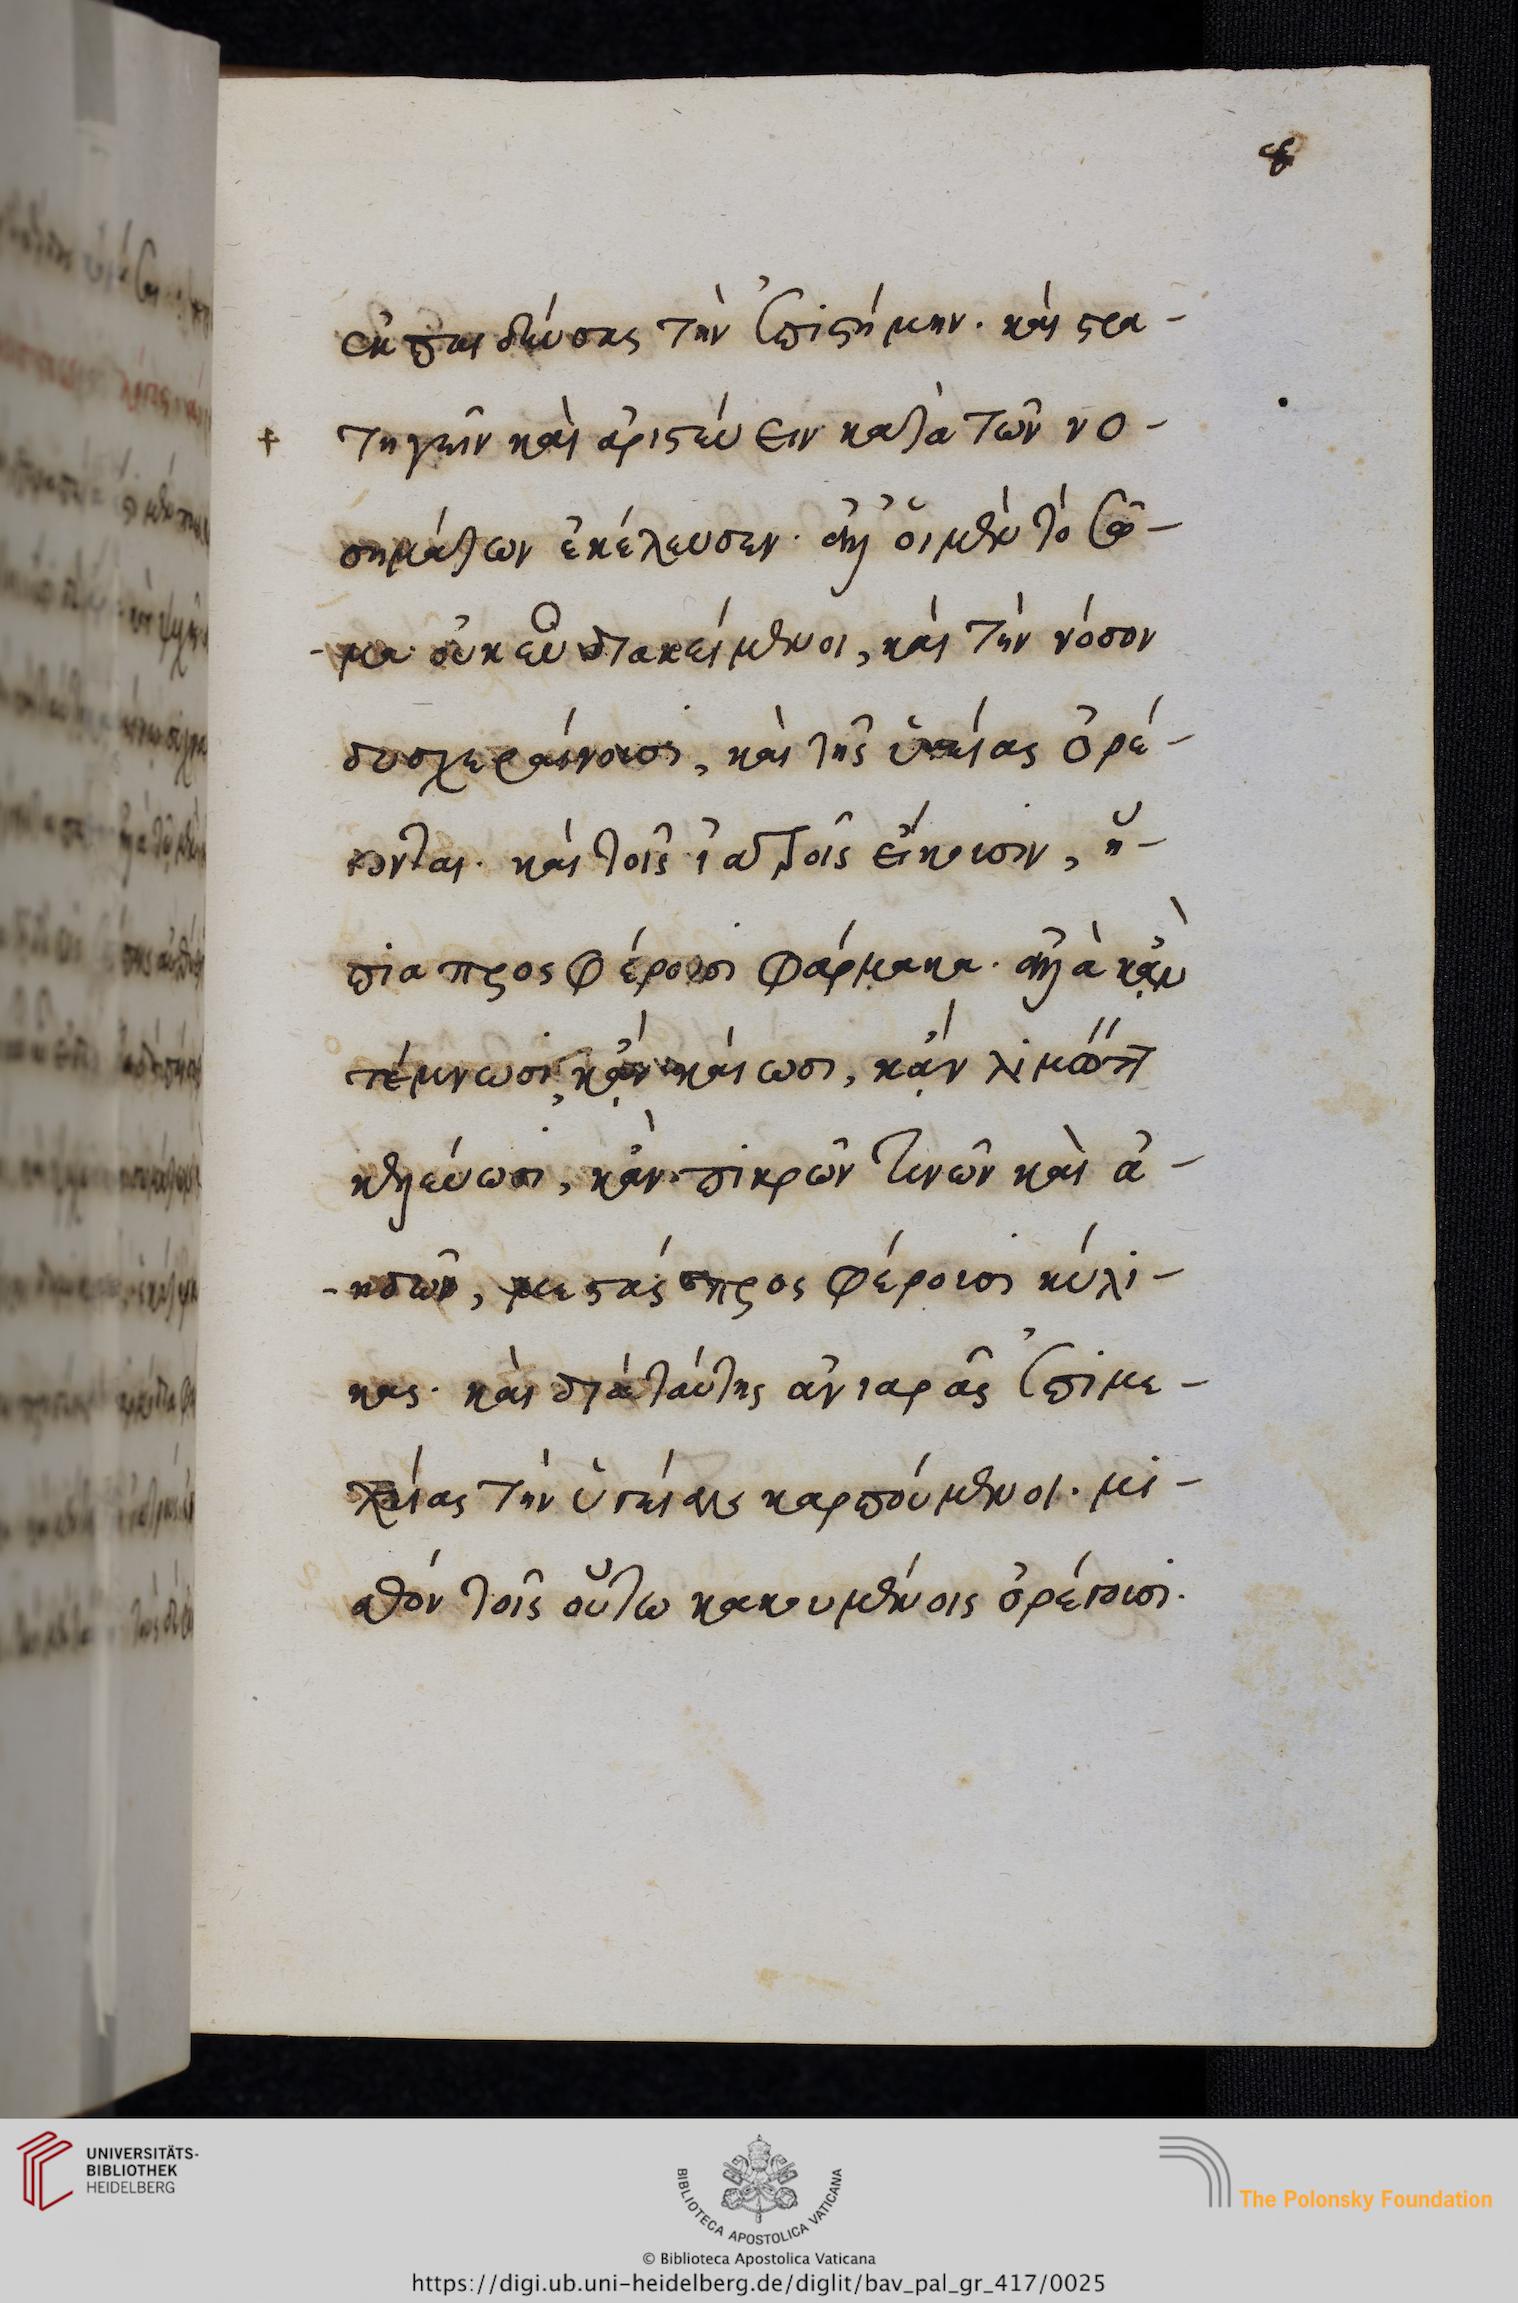 ἐκπαιδεύσας τὴν ἐπιστήμην· καὶ στρα-
τηγεῖν καὶ ἀριστεύειν κατὰ τῶν νο-
σημάτων ἐκέλευσεν· ἀλλ' οἱ μὲν τὸ σῶ-
μα οὐκ εὖ διακείμενοι, καὶ τὴν νόσον
δυσχεραίνουσι, καὶ τῆς ὑγείας ὀρέ-
γονται· καὶ τοῖς ἰατροῖς εἴκουσιν, ἤ-
πια προσφέρουσι φάρμακα· ἀλλὰ κἂν
τέμνωσι, κἂν καίωσι, κἂν λιμώττειν
κελεύωσι, κἂν πικρῶν τινῶν καὶ ἀ-
ηδῶν, μεστάς προσφέρουσι κύλι-
κας· καὶ διὰ ταύτης ἀνιαρᾶς ἐπιμε-
λείας τὴν ὑγείαν καρπούμενοι· μι-
σθόν τοῖς οὕτω κακουμένοις ὀρέγουσι.
UNIVERSITÄTS-
BIBLIOTHEK
HEIDELBERG
BIBLIOTECA APOSTOLICA VATICANA
The Polonsky Foundation
© Biblioteca Apostolica Vaticana
https://digi.ub.uni-heidelberg.de/diglit/bav_pal_gr_417/0025